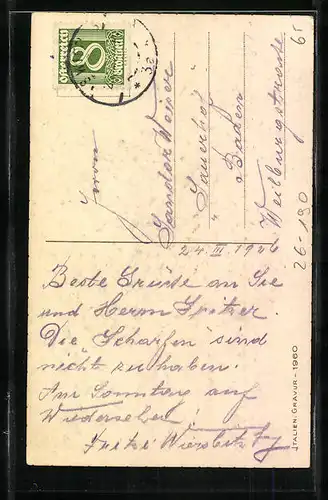 Österreich
8
Groschen
Herrn
Sandor Weiser
Sauerhof
Baden
Weilburgstrasse
24 III 1926
Beste Grüße an Sie
und Herrn Spitzer.
Die Scharfen sind
nicht zu haben.
Am Sonntag auf
Wiedersehen!
Fritzi
ITALIEN. GRAVUR - 1960
26-190